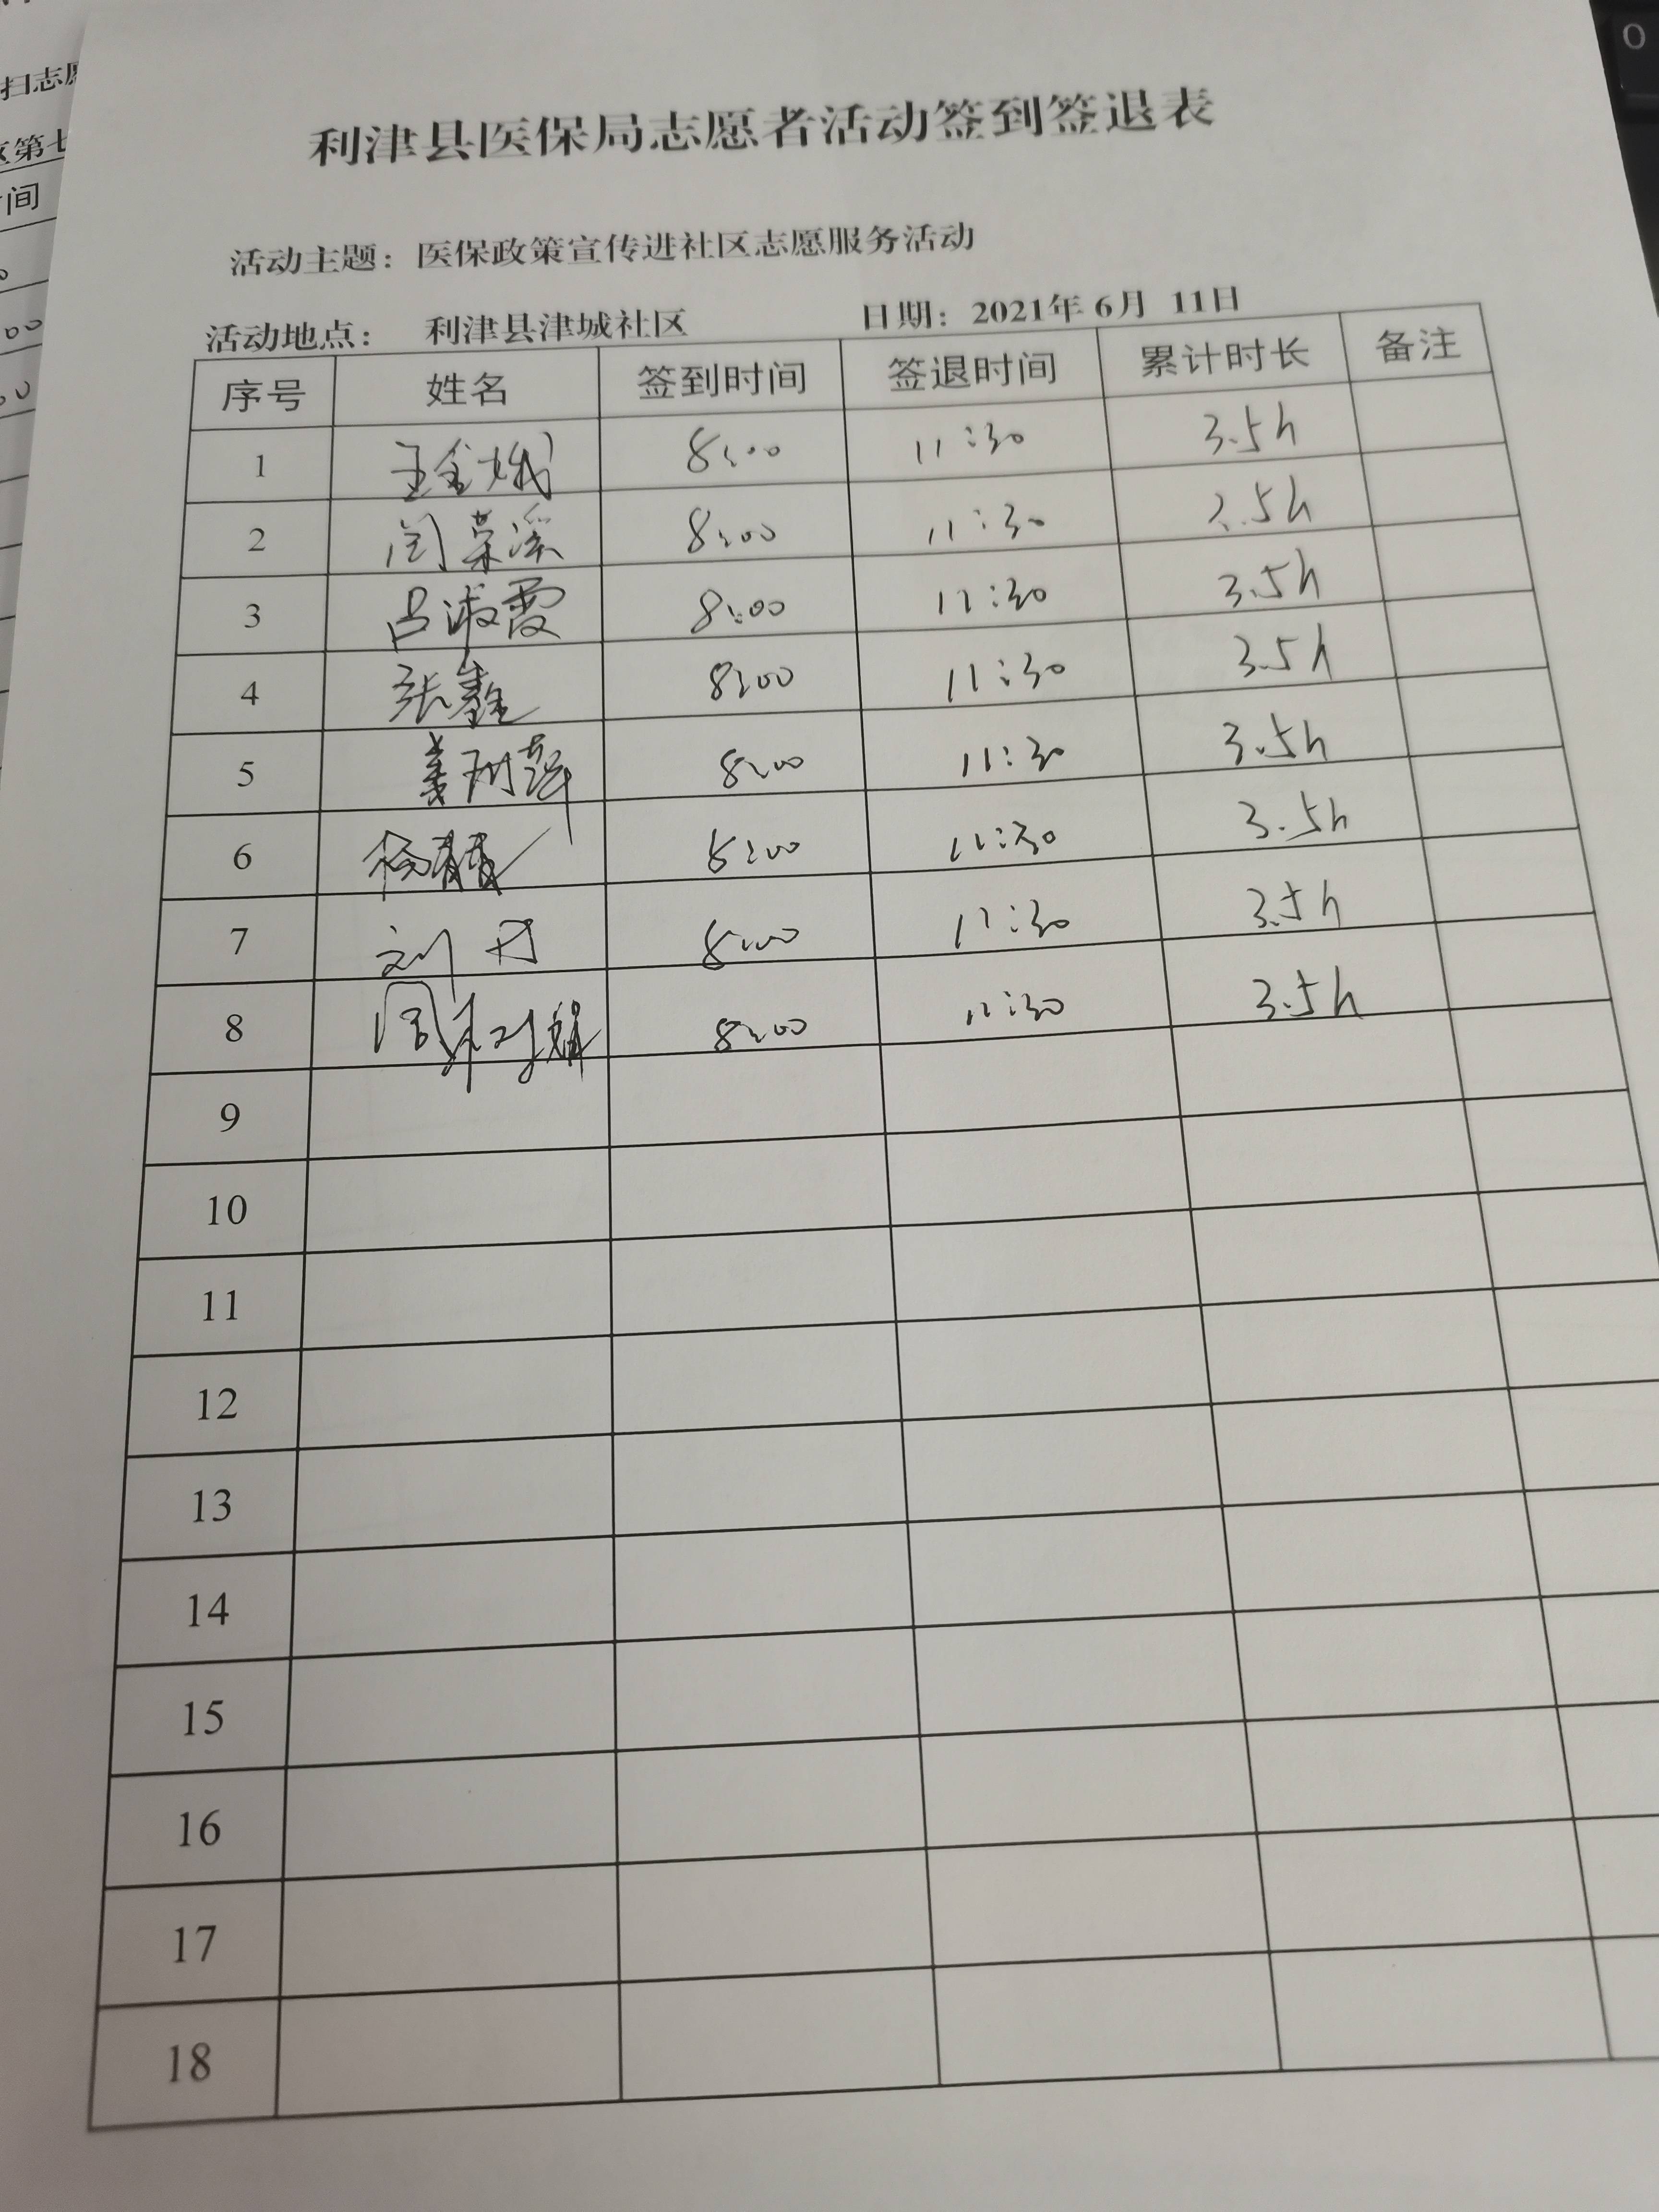 利津县医保局志愿者活动签到签退表
活动主题：医保政策宣传进社区志愿服务活动
活动地点： 利津县津城社区 日期：2021年 6月 11日
序号 姓名 签到时间 签退时间 累计时长 备注
1 王金娥 8:00 11:30 3.5h
2 闫荣溪 8:00 11:30 3.5h
3 吕淑霞 8:00 11:30 3.5h
4 张鑫 8:00 11:30 3.5h
5 姜 8:00 11:30 3.5h
6 8:00 11:30 3.5h
7 刘丹 8:00 11:30 3.5h
8 周 8:00 11:30 3.5h
9
10
11
12
13
14
15
16
17
18
扫志愿
区第七
间